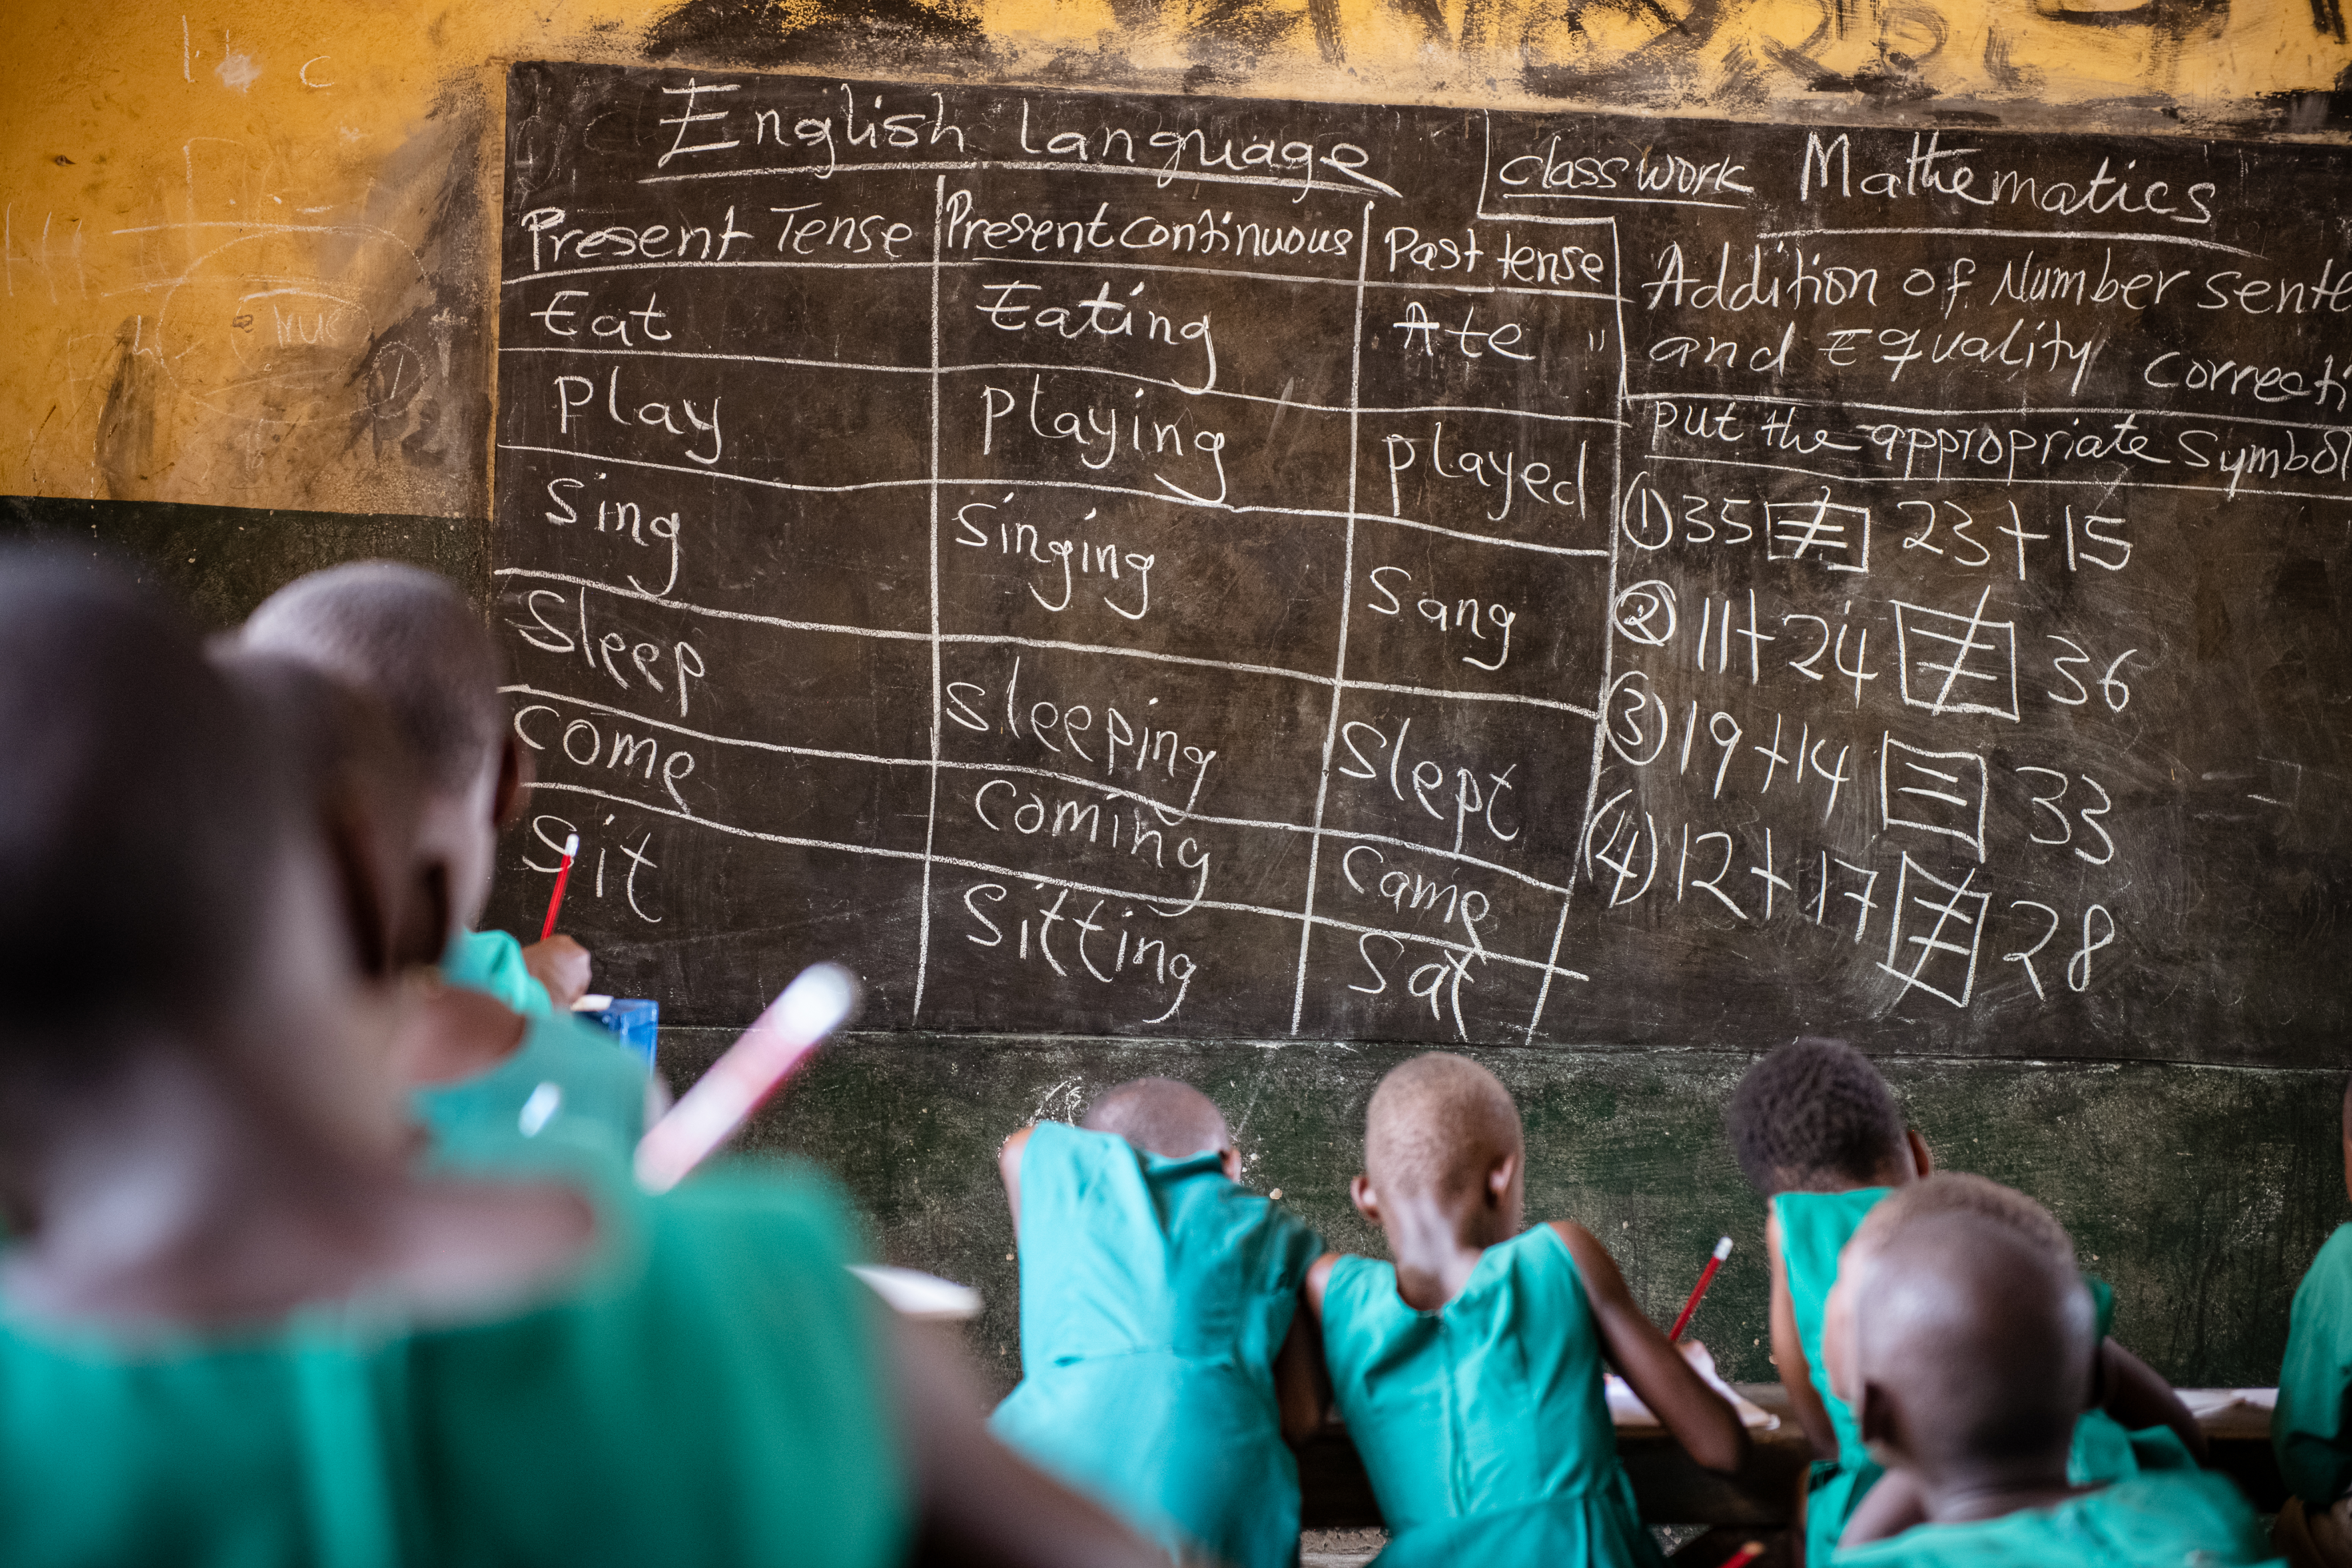 English Language
Present Tense Present continuous Past tense
Eat Eating Ate "
Play Playing played
Sing Singing Sang
Sleep sleeping Slept
come coming came
Sit Sitting Sat
classwork Mathematics
Addition of Number
and Equality
put the appropriate Symbol
(1) 35 ≠ 23+15
(2) 11+24 ≠ 36
(3) 19+14 = 33
(4) 12+17 ≠ 28
True